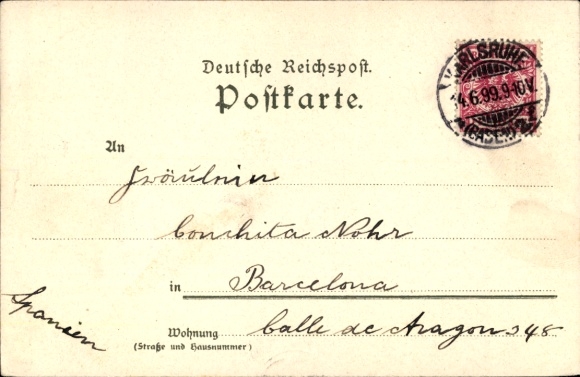 Deutsche Reichspost.
Postkarte.
KARLSRUHE
4.6.99.9-10V.
(BADEN) 2
An
Fräulein
Conchita Nohr
in Barcelona
Spanien
Wohnung Calle de Aragon 348
(Straße und Hausnummer)